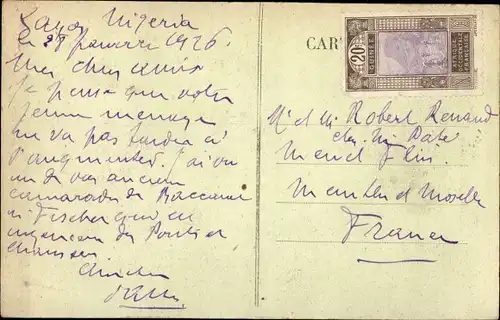 Nigeria
le 28 janvier 1926
Mes chers amis
je pense que votre
jeune menage
ne va pas tarder à
s'augmenter. J'ai vu
un de vos anciens
camarades de Baccarat
Mr Fischer qui est
ingenieur des Ponts et
chaussees
CART
20
GUINÉE
AFRIQUE OCCIDENTALE FRANÇAISE
Mr et Me Robert Renaud
Meurthe et Moselle
France